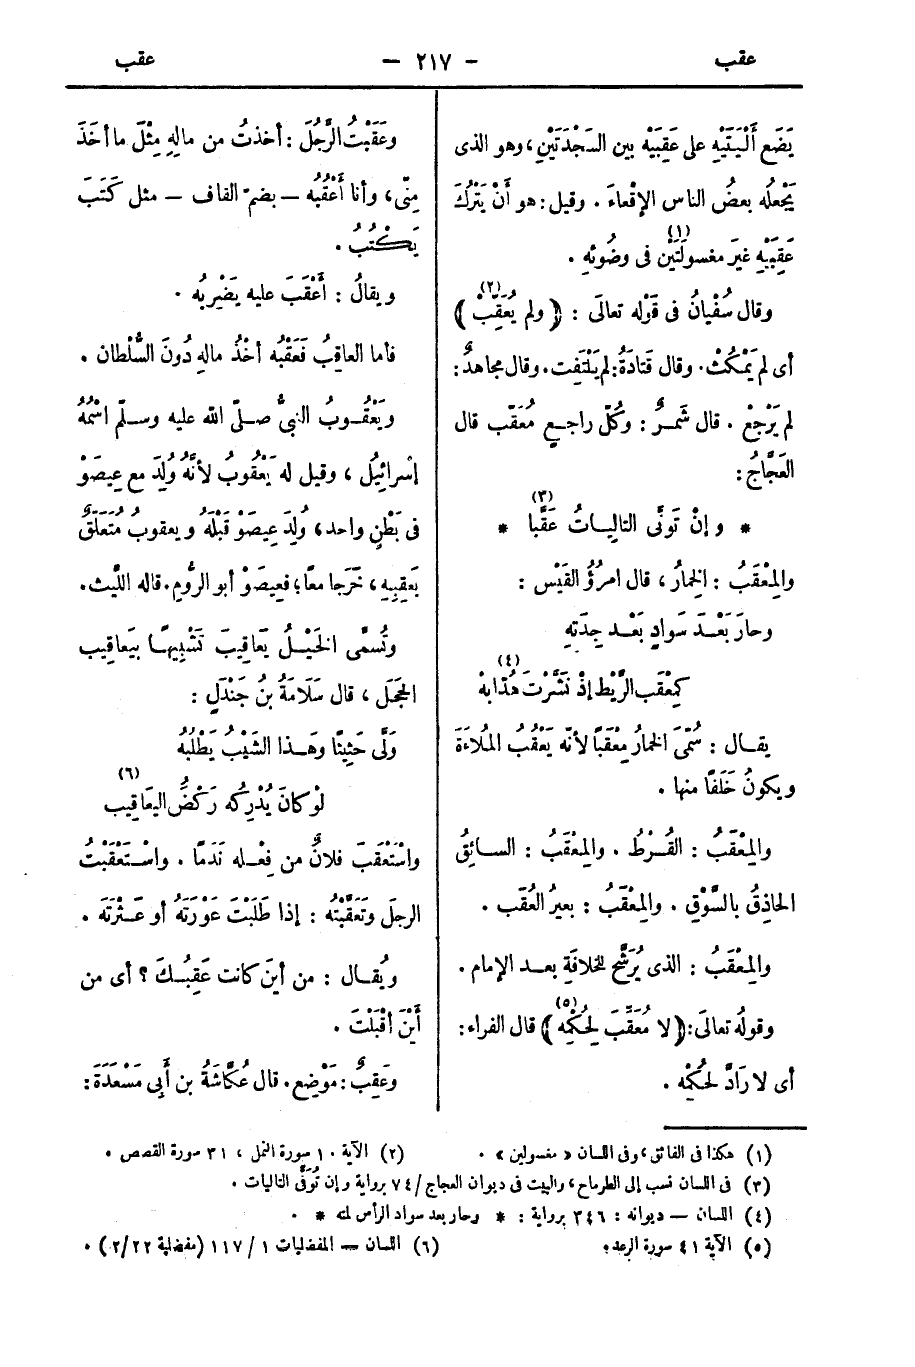 عقب
— ٢١٧ —
عقب
يَضَع أَلْيَتَيْهِ على عَقِبَيْهِ بين السَجْدَتَيْنِ، وهو الذى
يَجْعلُه بعضُ الناس الإقْعاءَ . وقيل : هو أنْ يَتْرُكَ
عَقِبَيْهِ غيرَ مغسولَتَيْنِ (١) فى وضُوئِهِ .
وقال سُفْيانُ فى قَوْله تعالَى : ﴿ ولم يُعَقِّبْ (٢) ﴾
أى لم يَمْكُثْ . وقال قَتادَةُ : لم يَلْتَفِت . وقال مجاهدٌ :
لم يَرْجِعْ . قال شَمِرٌ : وكُلّ راجعٍ مُعَقّب قال
العَجَّاجُ :
* وإنْ تَوَنَّى التاليـاتُ عَقَّبا (٣) *
والمِعْقَبُ : الخِمارُ ، قال امرُؤُ القَيْس :
وحارَ بَعْـدَ سَوادٍ بَعْـد جِدَتِهِ
كمِعْقَب الرَّيْط إذْ نَشَّرْتَ هُدّابهْ (٤)
يقـال : سُمِّىَ الخمارُ مِعْقَباً لأنّه يَعْقُبُ المُلاءَةَ
ويكونُ خَلَفًا منها .
والمِعْقَبُ : القُـرْطُ . والمِعْقَبُ : السـائِقُ
الحاذِقُ بالسَّوْقِ . والمِعْقَبُ : بعيرُ العُقَب .
والمِعْقَبُ : الذى يُرَشَّح للخلافَةِ بعـد الإمام .
وقولُه تعالَى : ﴿ لا مُعَقِّبَ لِحُكْمِه (٥) ﴾ قال الفراء :
أى لا رَادَّ لحُكْمِه .
وعَقَبْتُ الرَّجُلَ : أخذتُ من مالِهِ مِثْلَ ما أخَذَ
مِنِّى ، وأنا أَعْقُبُه — بضمّ القاف — مثل كَتَبَ
يَـكْتُبُ .
ويقالُ : أَعْقَبَ عليه يضْرِبُه .
فأما العاقِبُ فَعَقْبُه أخْذُ مالِهِ دُونَ السُّلْطان .
ويَعْقُـوبُ النبىُّ صـلّى الله عليه وسـلّم اسْمُهُ
إسْرائيلُ ، وقيل له يَعْقُوبُ لأنَّهُ وُلِدَ مع عِيصَوْ
فى بَطْنٍ واحد ، وُلِدَ عِيصَوْ قَبْلَهُ ويعقوبُ مُتَعَلِّقٌ
بعَقِبِهِ ، خَرَجا معًا ؛ فعِيصَوْ أبو الرُّومِ . قاله اللَّيث .
وتُسمَّى الخَيْـلُ يَعاقِيبَ تَشْبِيهـًا بيَعاقِيب
الحَجَل ، قال سَلاَمَةُ بنُ جَنْدَلٍ :
وَلَّى حَثِيثًا وهَـذا الشَيْبُ يَطْلُبُهُ
لوْ كانَ يُدْرِكُه رَكْضُ اليَعاقِيب (٦)
واسْتَعْقَبَ فلانٌ من فِعْـله نَدَمًا . واسْـتَعْقَبْتُ
الرجلَ وتَعَقَّبْتُه : إذا طَلَبْتَ عَوْرَتَهُ أو عَـثْرَتَه .
ويُقـال : من أينَ كانت عَقِبُـكَ ؟ أى من
أَيْنَ أقْبَلْتَ .
وعَقِبٌ : مَوْضِع . قال عُكَّاشَةُ بن أَبِى مَسْعَدَةَ :
(١) هكذا فى الفائق ، وفى اللسان « مغسولين » .
(٢) الآية ١٠ سورة النمل ، ٣١ سورة القصص .
(٣) فى اللسان نسب إلى الطرماح ، والبيت فى ديوان العجاج / ٧٤ برواية وإن تُوَنَّى التاليات .
(٤) اللسان — ديوانه : ٣٤٦ برواية : * وحار بعد سواد الرأس لمته * .
(٥) الآية ٤١ سورة الرعد .
(٦) اللسان — المفضليات ١ / ١١٧ (مفضلية ٢٢ / ٢) .